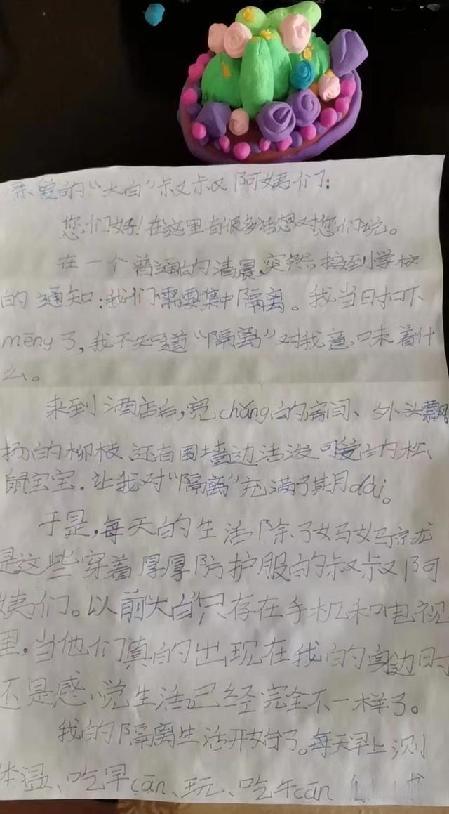 亲爱的“大白”叔叔阿姨们：
您们好！在这里有很多话想对您们说。
在一个普通的清晨，突然接到学校
的通知：我们需要集中隔离。我当时吓
mēng了，我不知道“隔离”对我意味着什
么。
来到酒店后，宽chǎng的房间、外头飘
扬的柳枝还有围墙边活泼可爱的松
鼠宝宝，让我对“隔离”充满了期dài。
于是，每天的生活除了妈妈就
是这些穿着厚厚防护服的叔叔阿
姨们。以前大白只存在手机和电视
里，当他们真的出现在我的身边时
还是感觉生活已经完全不一样了。
我的隔离生活开始了。每天早上测
体温、吃早cān、玩、吃午cān